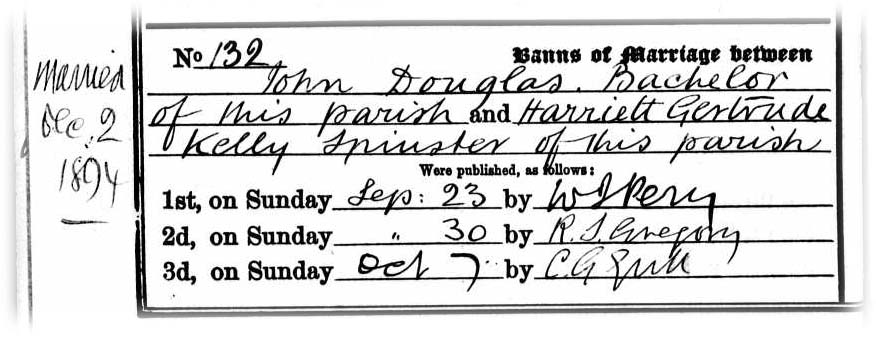 Married
Dec. 2
1894
No 132 Banns of Marriage between
John Douglas. Bachelor
of this parish and Harriett Gertrude
Kelly Spinster of this parish
Were published, as follows:
1st, on Sunday Sep: 23 by
2d, on Sunday " 30 by R. S. Gregory
3d, on Sunday Oct 7 by C G